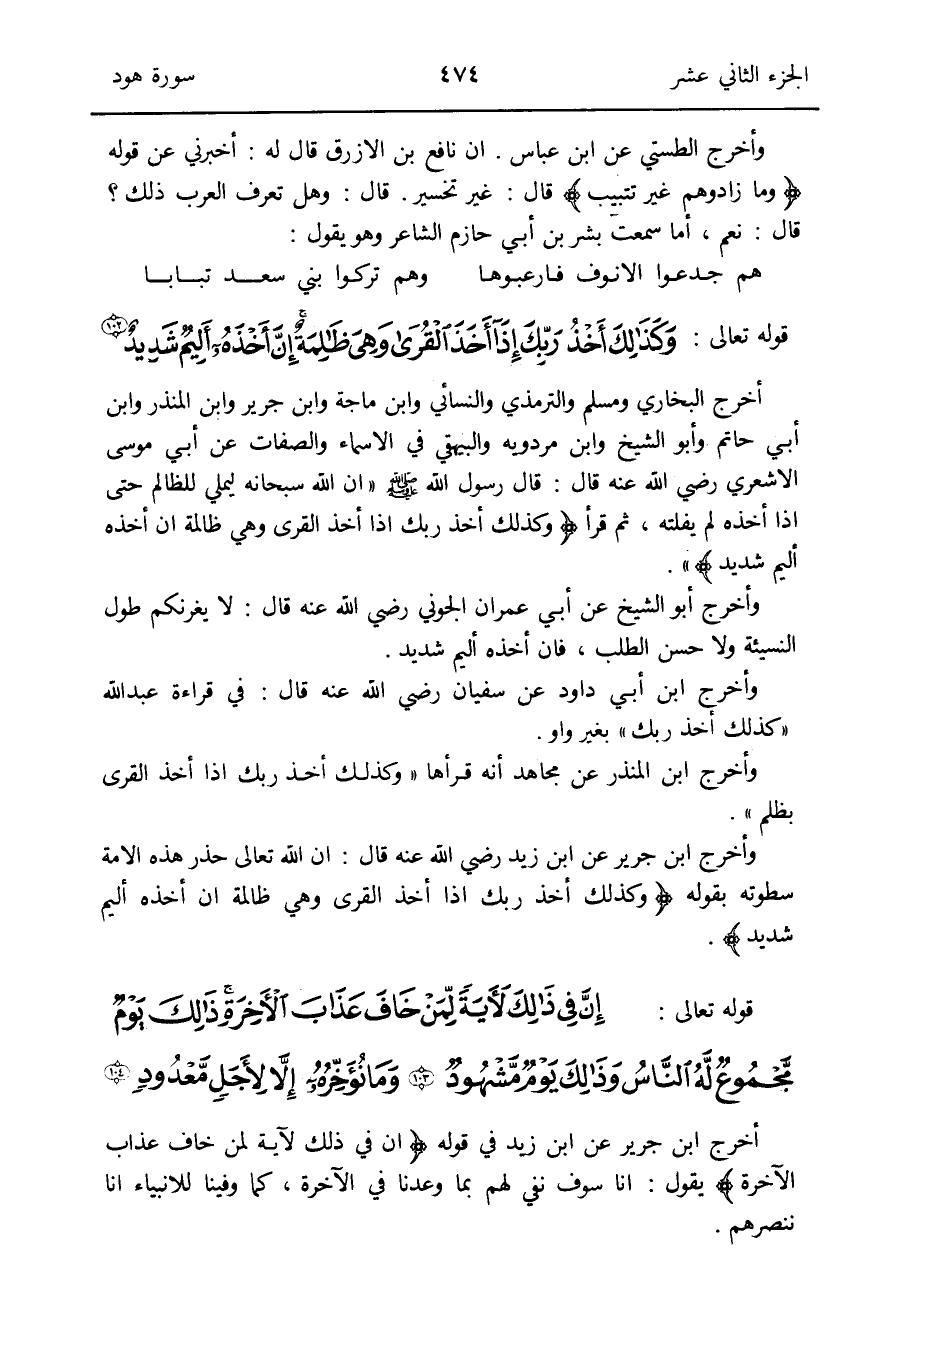 الجزء الثاني عشر ٤٧٤ سورة هود
وأخرج الطستي عن ابن عباس . ان نافع بن الازرق قال له : أخبرني عن قوله
﴿ وما زادوهم غير تتبيب ﴾ قال : غير تخسير . قال : وهل تعرف العرب ذلك ؟
قال : نعم ، أما سمعت بشر بن أبي حازم الشاعر وهو يقول :
هم جدعوا الانوف فارعبوها وهم تركوا بني سعد تبابا
قوله تعالى : وَكَذَٰلِكَ أَخْذُ رَبِّكَ إِذَآ أَخَذَ ٱلْقُرَىٰ وَهِىَ ظَٰلِمَةٌ ۚ إِنَّ أَخْذَهُۥٓ أَلِيمٌ شَدِيدٌ ١٠٢
أخرج البخاري ومسلم والترمذي والنسائي وابن ماجة وابن جرير وابن المنذر وابن
أبي حاتم وأبو الشيخ وابن مردويه والبيهقي في الاسماء والصفات عن أبي موسى
الاشعري رضي الله عنه قال : قال رسول الله ﷺ « ان الله سبحانه ليملي للظالم حتى
اذا أخذه لم يفلته ، ثم قرأ ﴿ وكذلك أخذ ربك اذا أخذ القرى وهي ظالمة ان أخذه
أليم شديد ﴾ » .
وأخرج أبو الشيخ عن أبي عمران الجوني رضي الله عنه قال : لا يغرنكم طول
النسيئة ولا حسن الطلب ، فان أخذه أليم شديد .
وأخرج ابن أبي داود عن سفيان رضي الله عنه قال : في قراءة عبدالله
« كذلك أخذ ربك » بغير واو .
وأخرج ابن المنذر عن مجاهد أنه قرأها « وكذلك أخذ ربك اذا أخذ القرى
بظلم » .
وأخرج ابن جرير عن ابن زيد رضي الله عنه قال : ان الله تعالى حذر هذه الامة
سطوته بقوله ﴿ وكذلك أخذ ربك اذا أخذ القرى وهي ظالمة ان أخذه أليم
شديد ﴾ .
قوله تعالى : إِنَّ فِى ذَٰلِكَ لَأٓيَةً لِّمَنْ خَافَ عَذَابَ ٱلْأَخِرَةِ ۚ ذَٰلِكَ يَوْمٌ
مَّجْمُوعٌ لَّهُ ٱلنَّاسُ وَذَٰلِكَ يَوْمٌ مَّشْهُودٌ ١٠٣ وَمَا نُؤَخِّرُهُۥٓ إِلَّا لِأَجَلٍ مَّعْدُودٍ ١٠٤
أخرج ابن جرير عن ابن زيد في قوله ﴿ ان في ذلك لآية لمن خاف عذاب
الآخرة ﴾ يقول : انا سوف نفي لهم بما وعدنا في الآخرة ، كما وفينا للانبياء انا
ننصرهم .